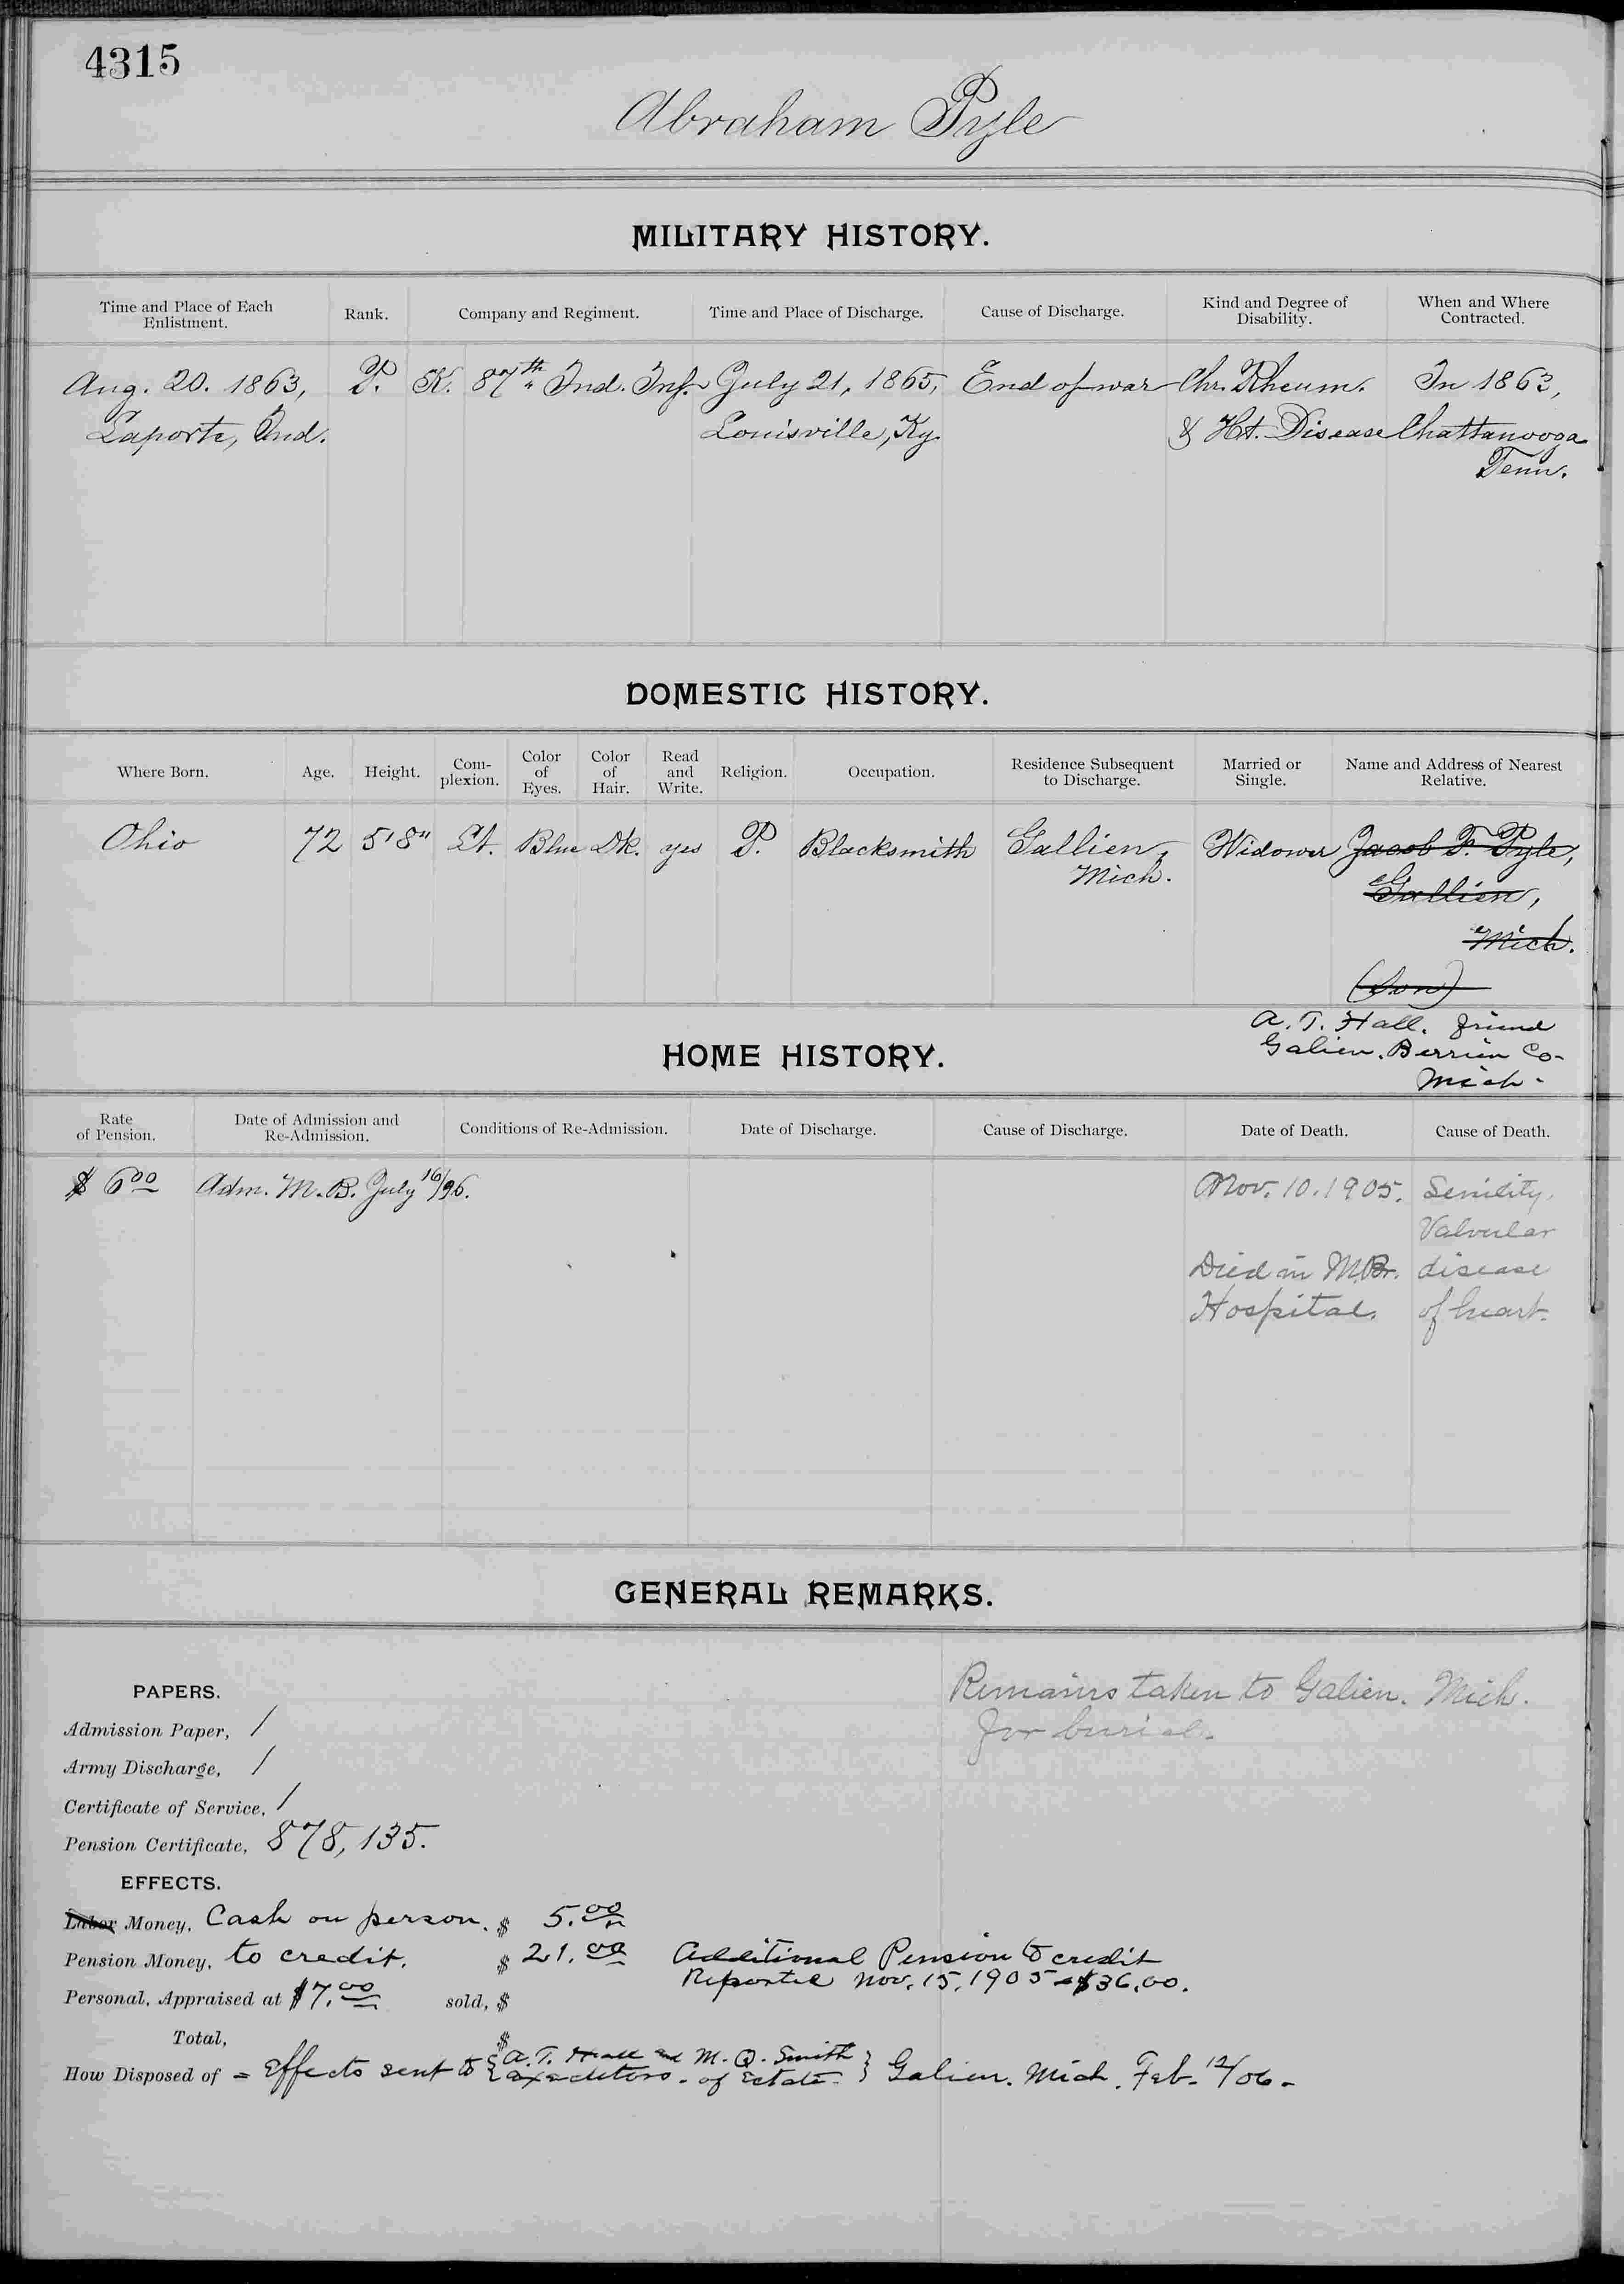 4315
Abraham Pyle
MILITARY HISTORY.
Time and Place of Each Enlistment. Rank. Company and Regiment. Time and Place of Discharge. Cause of Discharge. Kind and Degree of Disability. When and Where Contracted.
Aug. 20. 1863, P. K. 87th Ind. Inf. July 21, 1865, End of war Chr. Rheum. In 1863,
Laporte, Ind. Louisville, Ky. & Ht. Disease Chattanooga
Tenn.
DOMESTIC HISTORY.
Where Born. Age. Height. Com-plexion. Color of Eyes. Color of Hair. Read and Write. Religion. Occupation. Residence Subsequent to Discharge. Married or Single. Name and Address of Nearest Relative.
Ohio 72 5'8" Lt. Blue Dk. yes P. Blacksmith Gallien, Widower Jacob F. Pyle,
Mich. Gallien,
Mich.
(Son)
A. T. Hall. friend
Galien. Berrien Co-
Mich-
HOME HISTORY.
Rate of Pension. Date of Admission and Re-Admission. Conditions of Re-Admission. Date of Discharge. Cause of Discharge. Date of Death. Cause of Death.
$ 6.00 Adm. M. B. July 16/96. Nov. 10. 1905. Senility.
Valvular
Died in M.Br. disease
Hospital. of heart.
GENERAL REMARKS.
Remains taken to Galien. Mich.
for burial.
PAPERS.
Admission Paper, /
Army Discharge, /
Certificate of Service, /
Pension Certificate, 878,135.
EFFECTS.
Labor Money, Cash on person. $ 5.00
Pension Money, to credit. $ 21.00 Additional Pension to credit
Reported Nov. 15. 1905 - $36.00.
Personal, Appraised at $7.00 sold, $
Total, $
How Disposed of - Effects sent to { A. T. Hall and M. Q. Smith
executors - of Estate. } Galien. Mich. Feb. 12/06 -